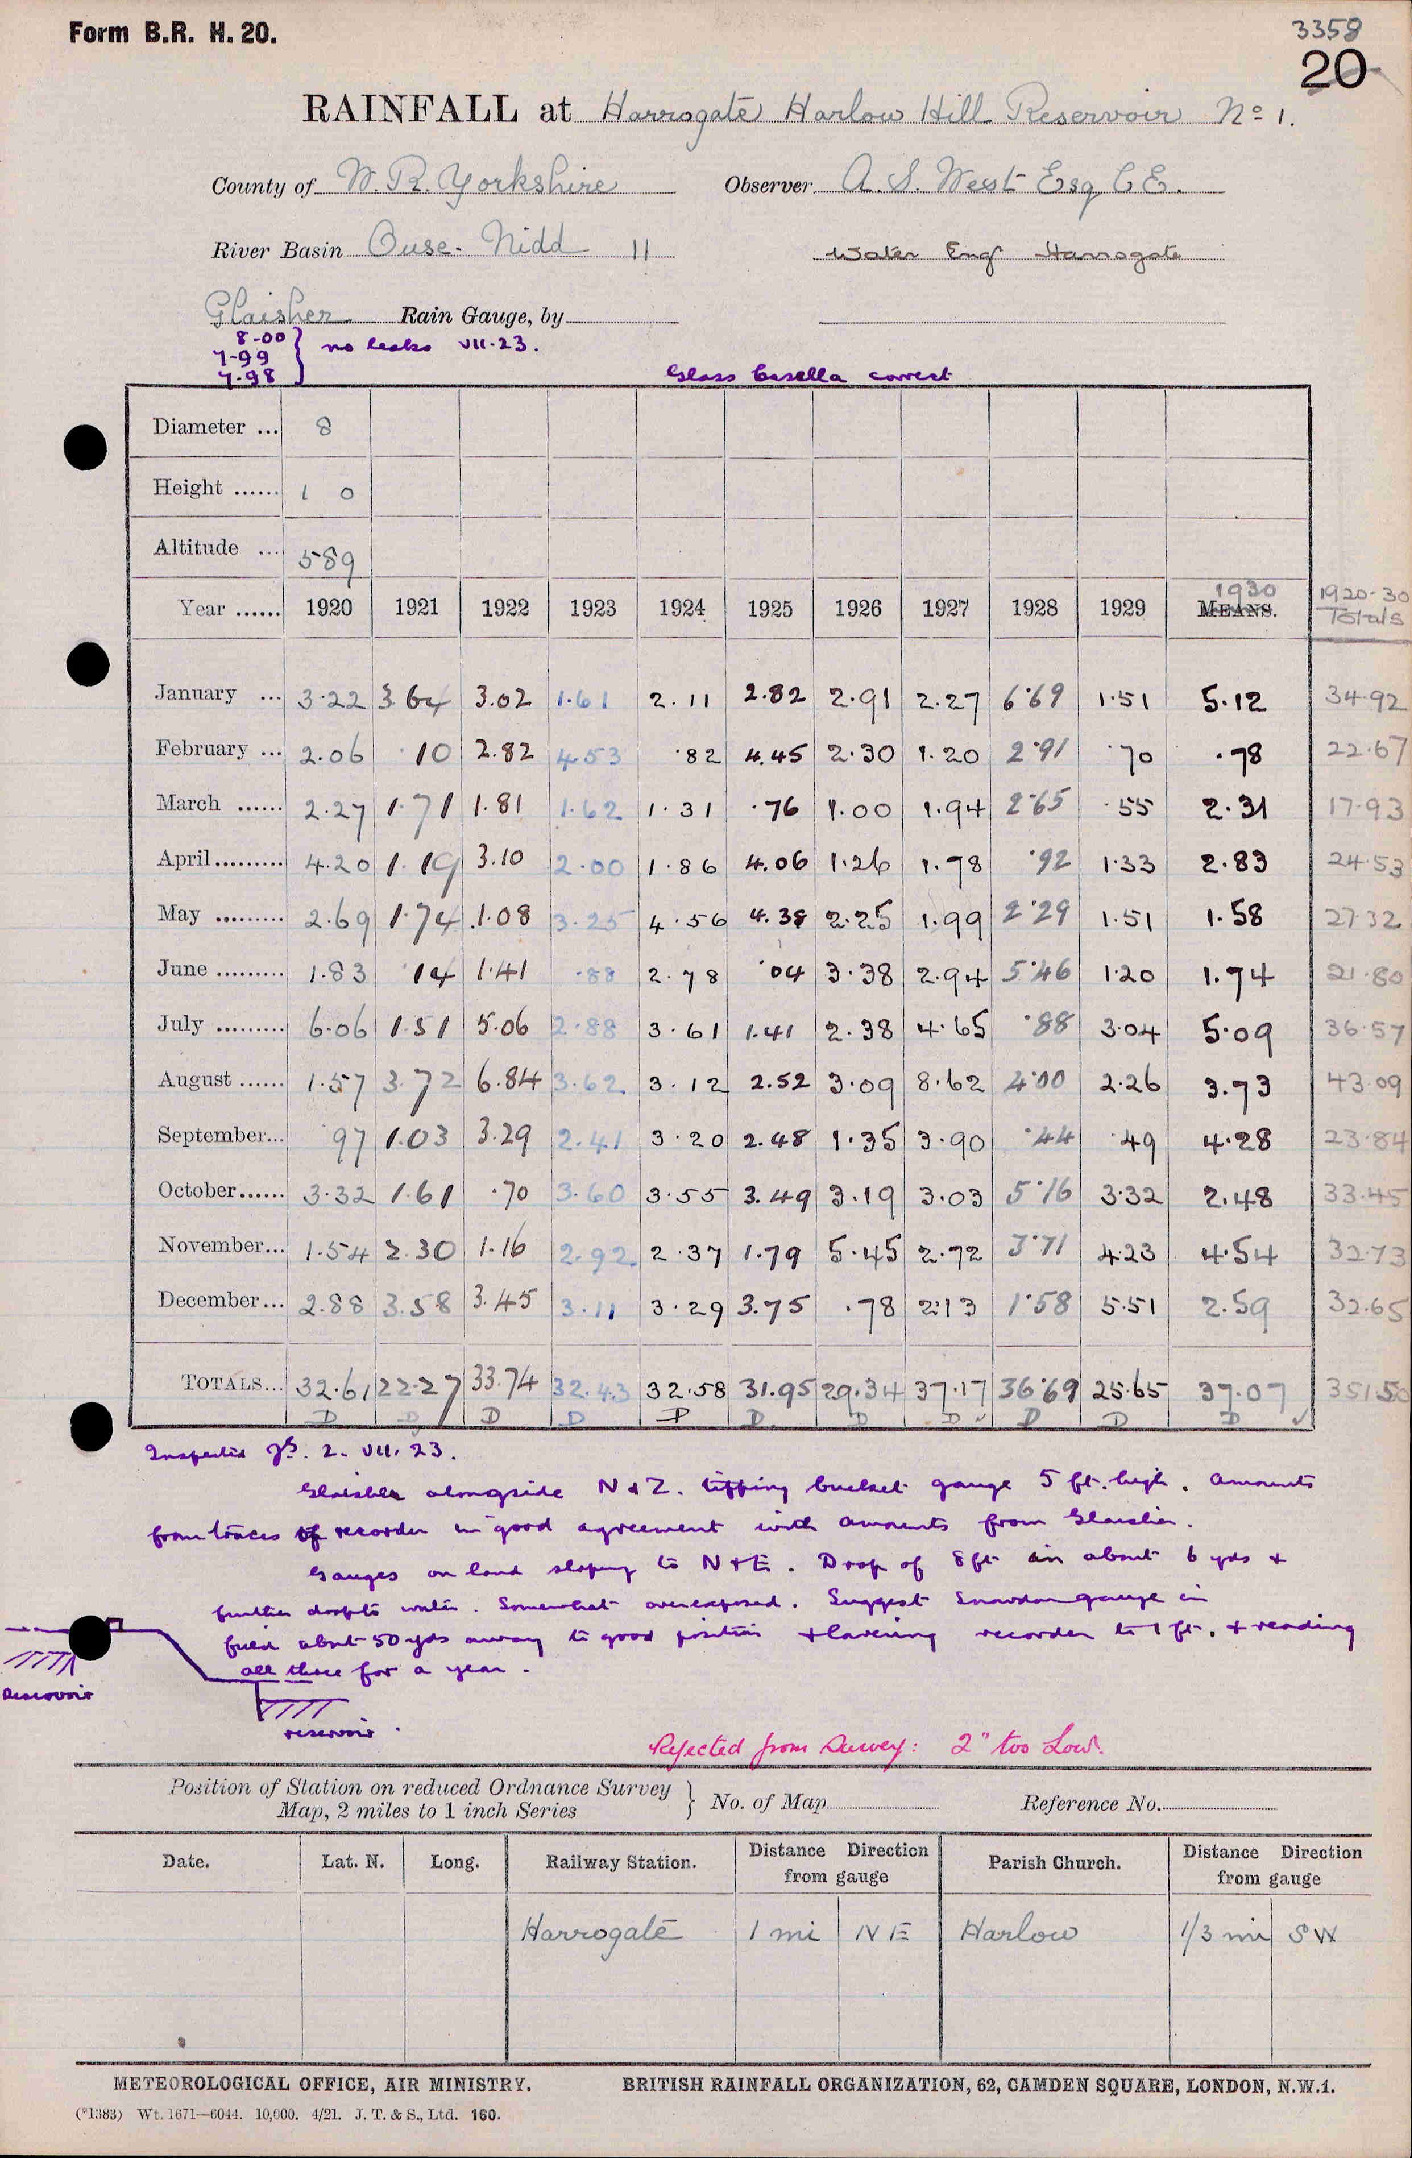 Form B.R. H. 20.
3358
20
RAINFALL at Harrogate Harlow Hill Reservoir No 1.
County of W. R. Yorkshire Observer A. S. West Esq C.E.
River Basin Ouse - Nidd 11 Water Eng Harrogate
Glaisher Rain Gauge, by
8.00
7.99 } no leaks VII.23.
7.98
Glass Casella correct
Diameter ... 8
Height ...... 1 0
Altitude ... 589
Year ...... 1920 1921 1922 1923 1924 1925 1926 1927 1928 1929 1930 MEANS. 1920-30 Totals
January ... 3.22 3.64 3.02 1.61 2.11 2.82 2.91 2.27 6.69 1.51 5.12 34.92
February ... 2.06 .10 2.82 4.53 .82 4.45 2.30 1.20 2.91 .70 .78 22.67
March ...... 2.27 1.71 1.81 1.62 1.31 .76 1.00 1.94 2.65 .55 2.31 17.93
April......... 4.20 1.19 3.10 2.00 1.86 4.06 1.26 1.78 .92 1.33 2.83 24.53
May ......... 2.69 1.74 1.08 3.25 4.56 4.38 2.25 1.99 2.29 1.51 1.58 27.32
June ......... 1.83 .14 1.41 .88 2.78 .04 3.38 2.94 5.46 1.20 1.74 21.80
July ......... 6.06 1.51 5.06 2.88 3.61 1.41 2.38 4.65 .88 3.04 5.09 36.57
August ...... 1.57 3.72 6.84 3.62 3.12 2.52 3.09 8.62 4.00 2.26 3.73 43.09
September... .97 1.03 3.29 2.41 3.20 2.48 1.35 3.90 .44 .49 4.28 23.84
October...... 3.32 1.61 .70 3.60 3.55 3.49 3.19 3.03 5.16 3.32 2.48 33.45
November... 1.54 2.30 1.16 2.92 2.37 1.79 5.45 2.72 3.71 4.23 4.54 32.73
December... 2.88 3.58 3.45 3.11 3.29 3.75 .78 2.13 1.58 5.51 2.59 32.65
TOTALS... 32.61 22.27 33.74 32.43 32.58 31.95 29.34 37.17 36.69 25.65 37.07 351.50
D D D D P D D D D D D
Inspected 2. VII. 23.
Glaisher alongside N & Z. tipping bucket gauge 5 ft. high. Amounts
from traces of recorder in good agreement with amounts from Glaisher.
Gauges on land sloping to N & E. Drop of 8 ft in about 6 yds &
further drop to water. Somewhat overexposed. Suggest Snowdon gauge in
field about 50 yds away in good position & lowering recorder to 1 ft. & reading
all three for a year.
Reservoir
reservoir.
Rejected from Survey: 2" too Low.
Position of Station on reduced Ordnance Survey
Map, 2 miles to 1 inch Series } No. of Map Reference No.
Date. Lat. N. Long. Railway Station. Distance Direction from gauge Parish Church. Distance Direction from gauge
Harrogate 1 mi NE Harlow 1/3 mi SW
METEOROLOGICAL OFFICE, AIR MINISTRY. BRITISH RAINFALL ORGANIZATION, 62, CAMDEN SQUARE, LONDON, N.W.1.
(*1383) Wt. 1671—6044. 10,000. 4/21. J. T. & S., Ltd. 160.